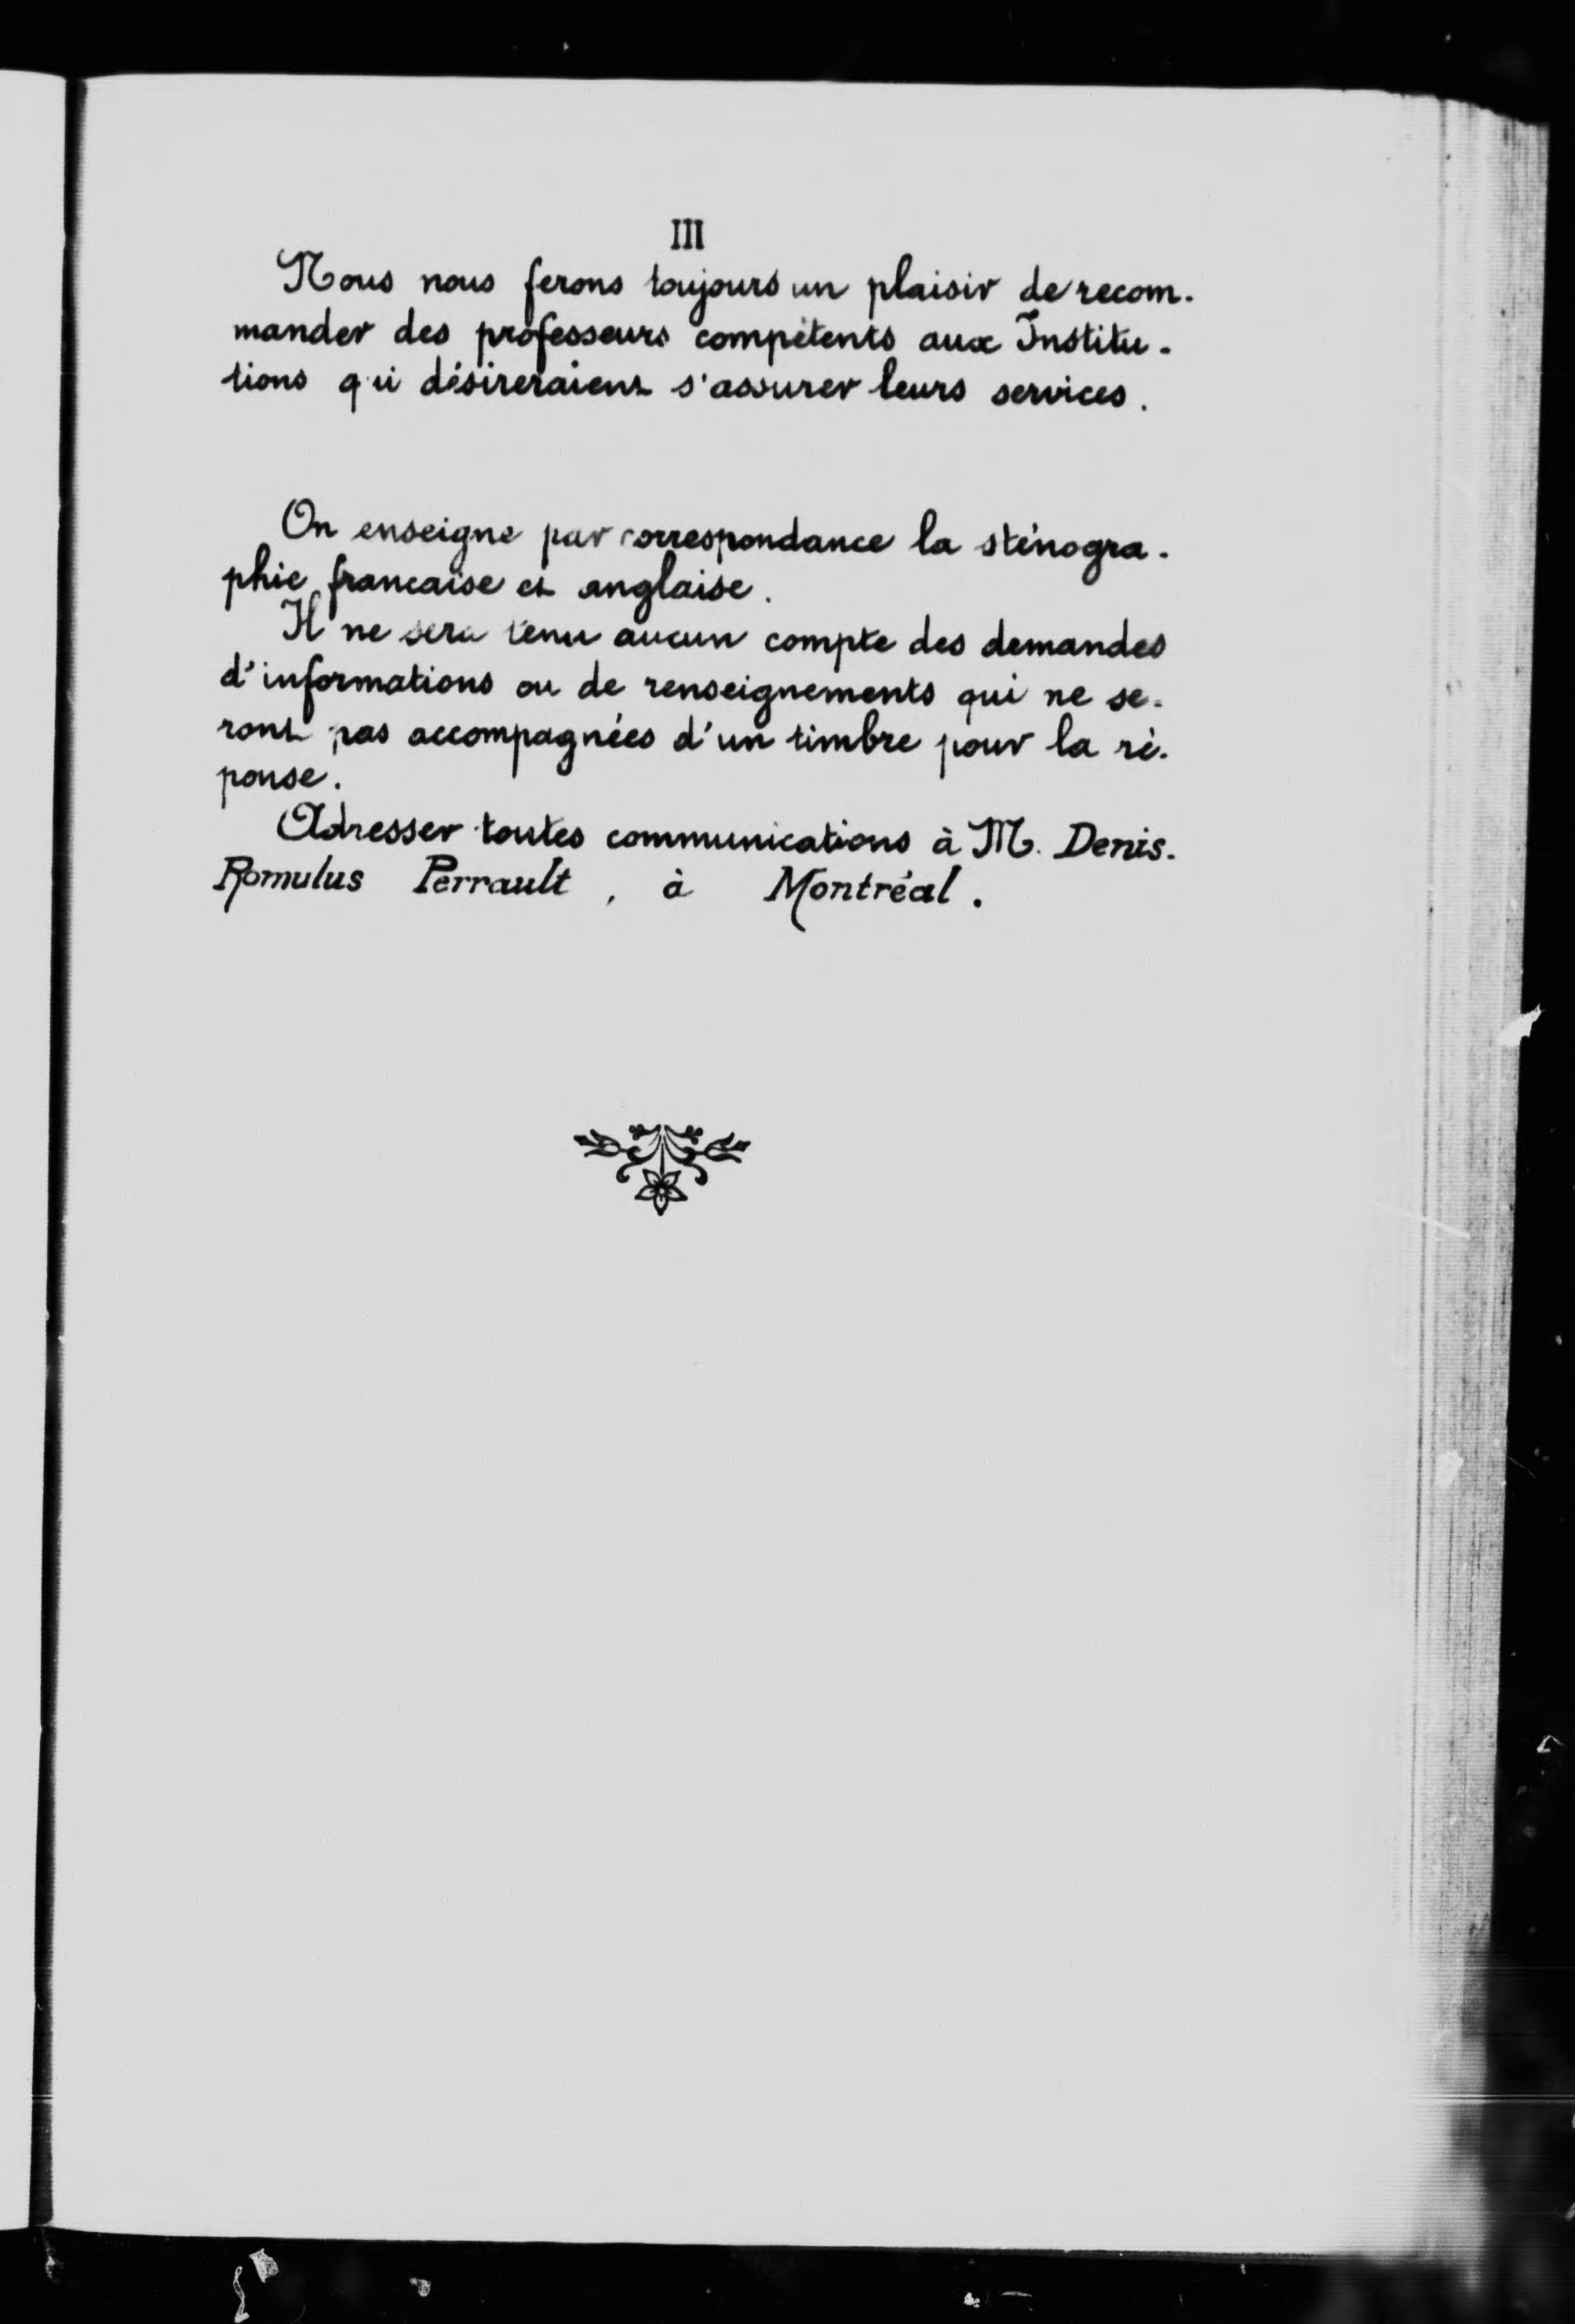 III
Nous nous ferons toujours un plaisir de recom-
mander des professeurs compétents aux Institu-
tions qui désireraient s'assurer leurs services.
On enseigne par correspondance la sténogra-
phie francaise et anglaise.
Il ne sera tenu aucun compte des demandes
d'informations ou de renseignements qui ne se-
ront pas accompagnées d'un timbre pour la ré-
ponse.
Adresser toutes communications à M. Denis-
Romulus Perrault, à Montréal.